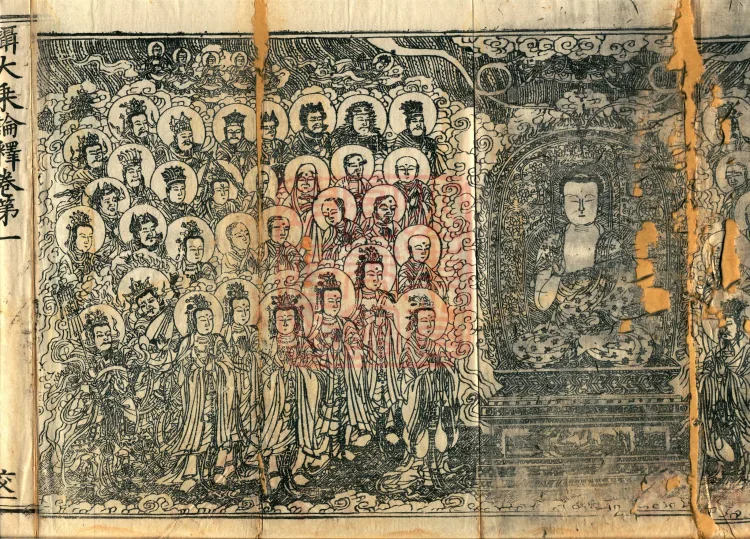 攝大乘論釋卷第一
交一